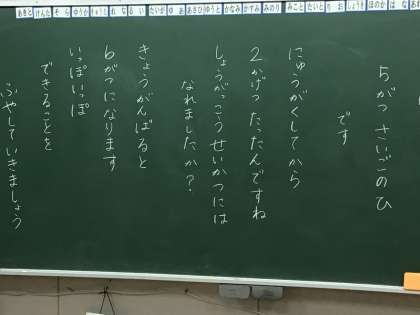 あきと けんた そら ゆうり きょうと れな るい たいが ゆあ あさひ ゆうと かなみ かずみ みのり みこと たいと りお しょうき ほのか はな
5がつ さいごのひ
です
にゅうがくしてから
2かげつ たったんですね
しょうがっこうせいかつには
なれましたか?
きょうがんばると
6がつになります
いっぽいっぽ
できることを
ふやしていきましょう